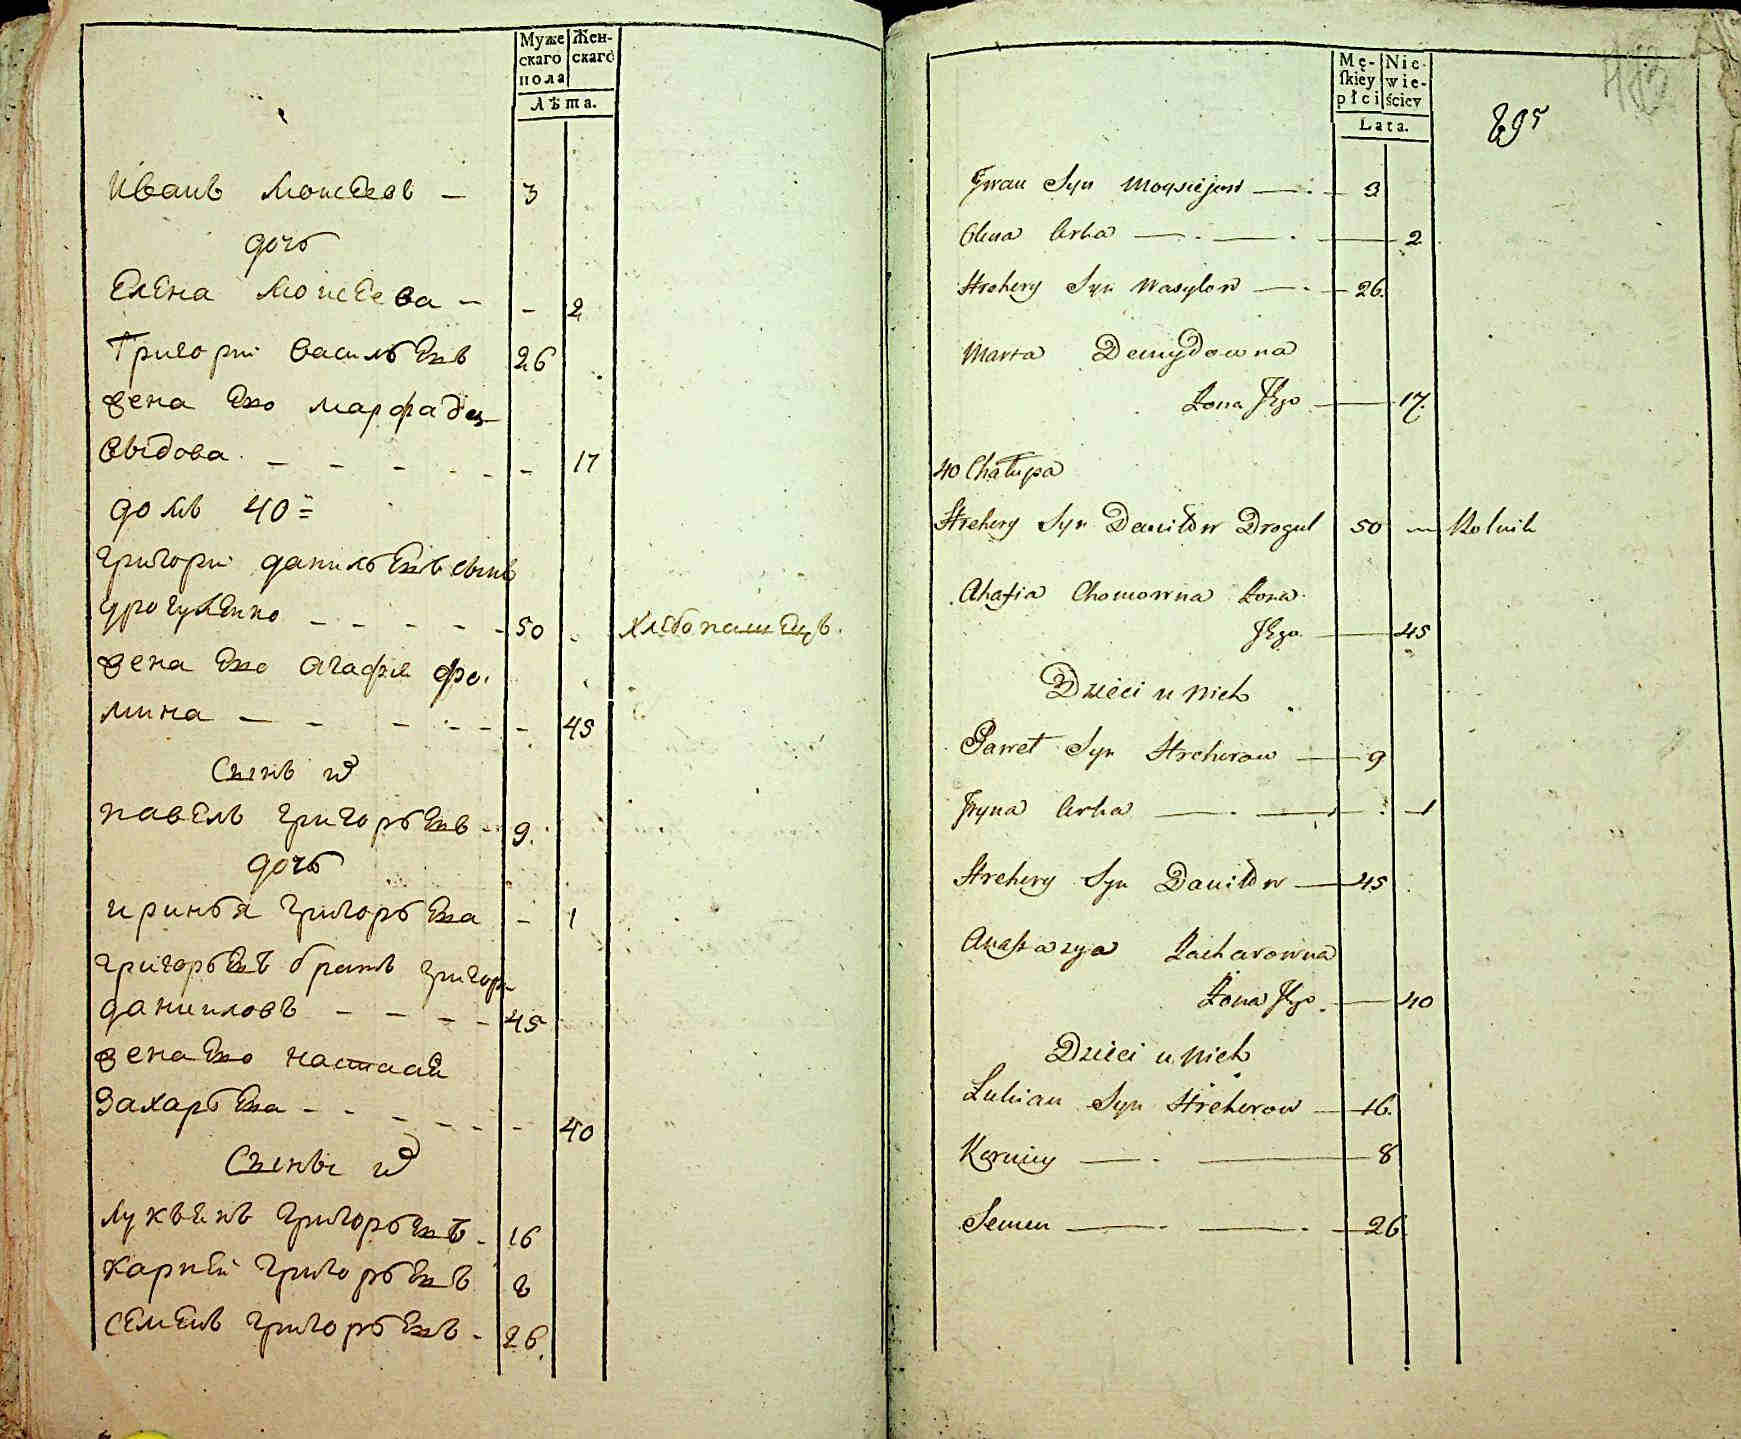 Муже Жен-
скаго скаго
пола
Лѣта.
Иванъ Моисеевъ — 3
дочь
Елена Моисеева — - 2
Григори Васильевъ 26
жена Его марфа де
выдова - - - - - - 17
домъ 40=
григори данильевъ сынъ
дрогуленко - - - - - 50 хлебопашецъ.
жена Его Агафия фо.
мина — - - - - - 45
Сынъ их
павелъ григорьевъ - 9.
дочь
иринья григорьева - 1
григорьевъ братъ григори
данииловъ - - - - 45
жена Его настасия
Захарьева - - - - - - 40
Сыны их
лукьянъ григорьевъ - 16
карпей григорьевъ 8
семенъ григорьевъ - 26.
Mę- Nie-
skiey wie-
płci ściey
Lata.
295
Jwan Syn Moysiejow — 3
Olena Corka — . — . — 2
Hrehery Syn Wasylow — . — 26.
Marta Demydowna
Zona Jego — 17.
40 Chałupa
Hrehery Syn Daniłow Drogul 50 — Rolnik
Ahafia Chomowna Zona
Jego — 45
Dzieci u nich
Paweł Syn Hrehorow — 9
Jryna Corka — . — 1
Hrehery Syn Daniłow — 45
Anastazya Zacharowna
Zona Jego. — 40
Dzieci u nich
Lukian Syn Hrehorow — 16.
Korniey — . — 8
Semen — . — . — 26.